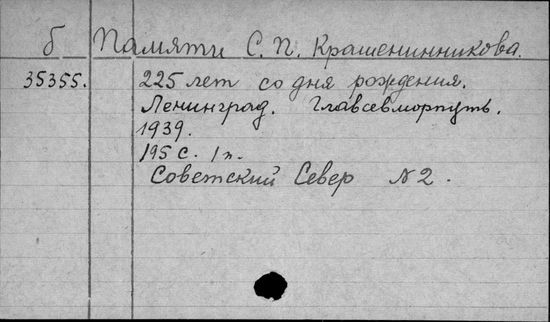 б Памяти С. П. Крашенинникова.
35355. 225 лет со дня рождения.
Ленинград. Главсевморпуть.
1939.
195 с. 1 п.
Советский Север N 2.